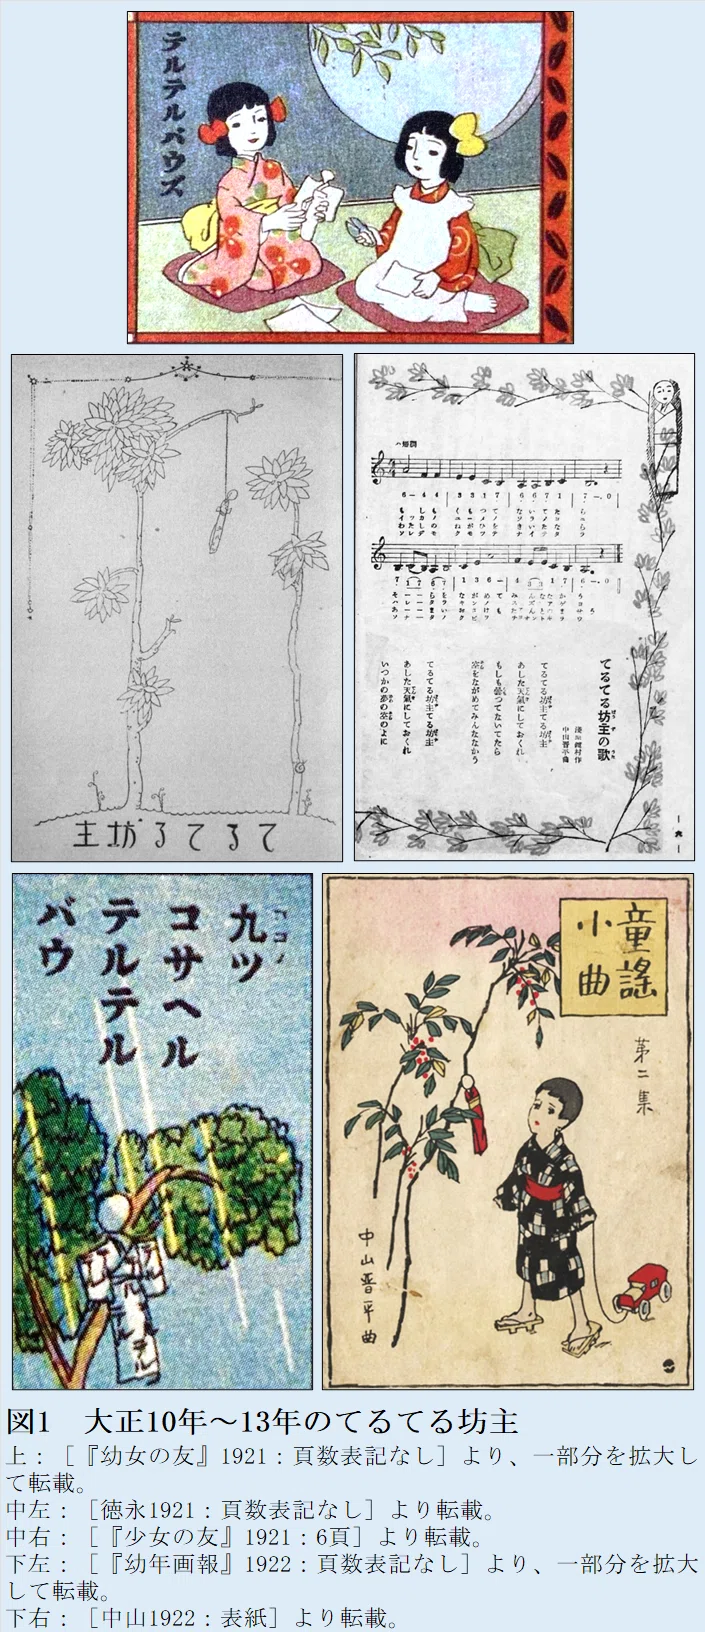 テルテルバウズ
ハ短調
6 - 4 4 | 3 3 1 7 | 6 6 7 1 | 7 - . 0
てるてる坊主の歌
浅原鏡村作
中山晋平曲
てるてる坊主てる坊主
あした天氣にしておくれ
もしも曇つてないてたら
空をながめてみんななかう
てるてる坊主てる坊主
あした天氣にしておくれ
いつかの夢の空のよに
主坊るてるて
九ツ
コサヘル
テルテル
バウ
童謠
小曲
第二集
中山晋平曲
図1 大正10年～13年のてるてる坊主
上：［『幼女の友』1921：頁数表記なし］より、一部分を拡大し
て転載。
中左：［徳永1921：頁数表記なし］より転載。
中右：［『少女の友』1921：6頁］より転載。
下左：［『幼年画報』1922：頁数表記なし］より、一部分を拡大
して転載。
下右：［中山1922：表紙］より転載。